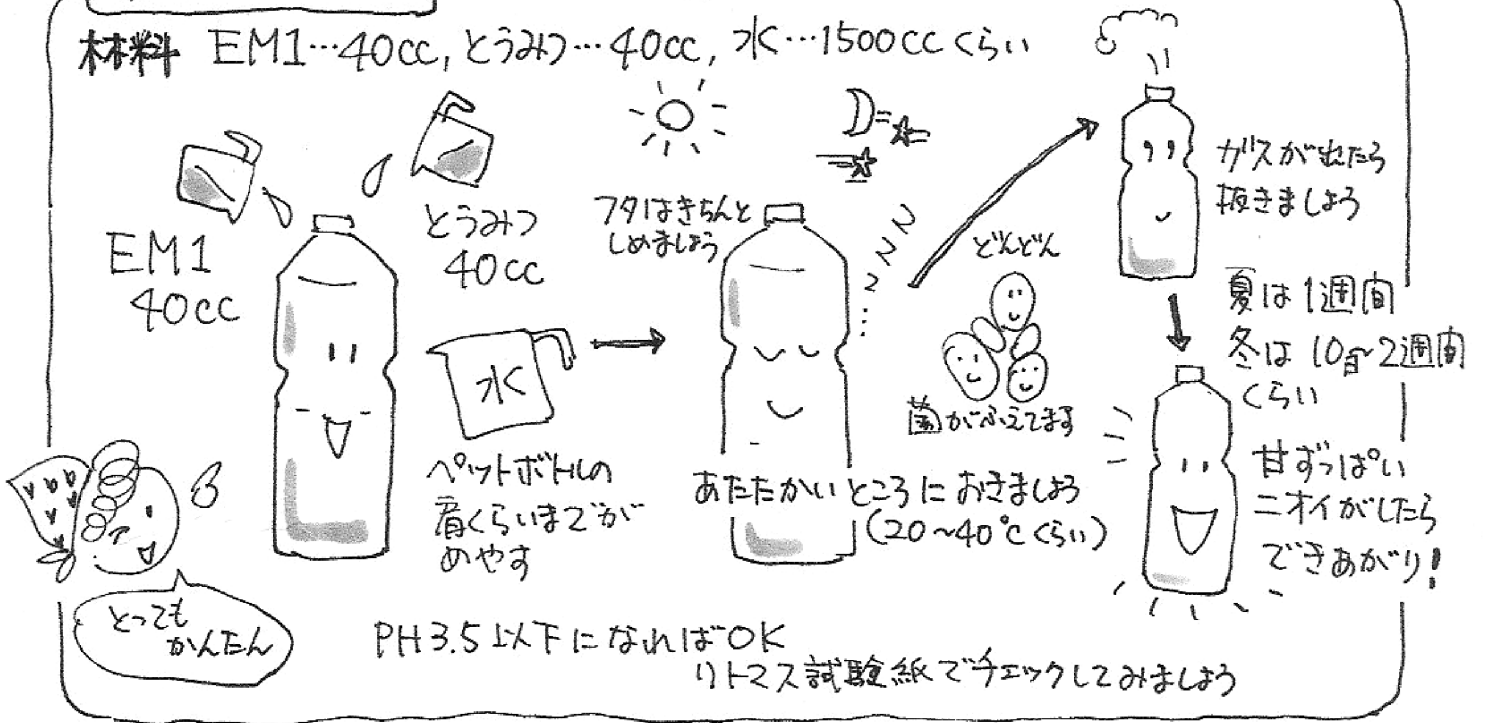 材料 EM1…40cc, とうみつ…40cc, 水…1500ccくらい
EM1
40cc
とうみつ
40cc
水
ペットボトルの
肩くらいまでが
めやす
フタはきちんと
しめましょう
zzz…
あたたかいところにおきましょう
(20~40℃くらい)
どんどん
菌がふえてます
ガスが出たら
抜きましょう
夏は1週間
冬は10日~2週間
くらい
甘ずっぱい
ニオイがしたら
できあがり!
とっても
かんたん
PH3.5以下になればOK
リトマス試験紙でチェックしてみましょう